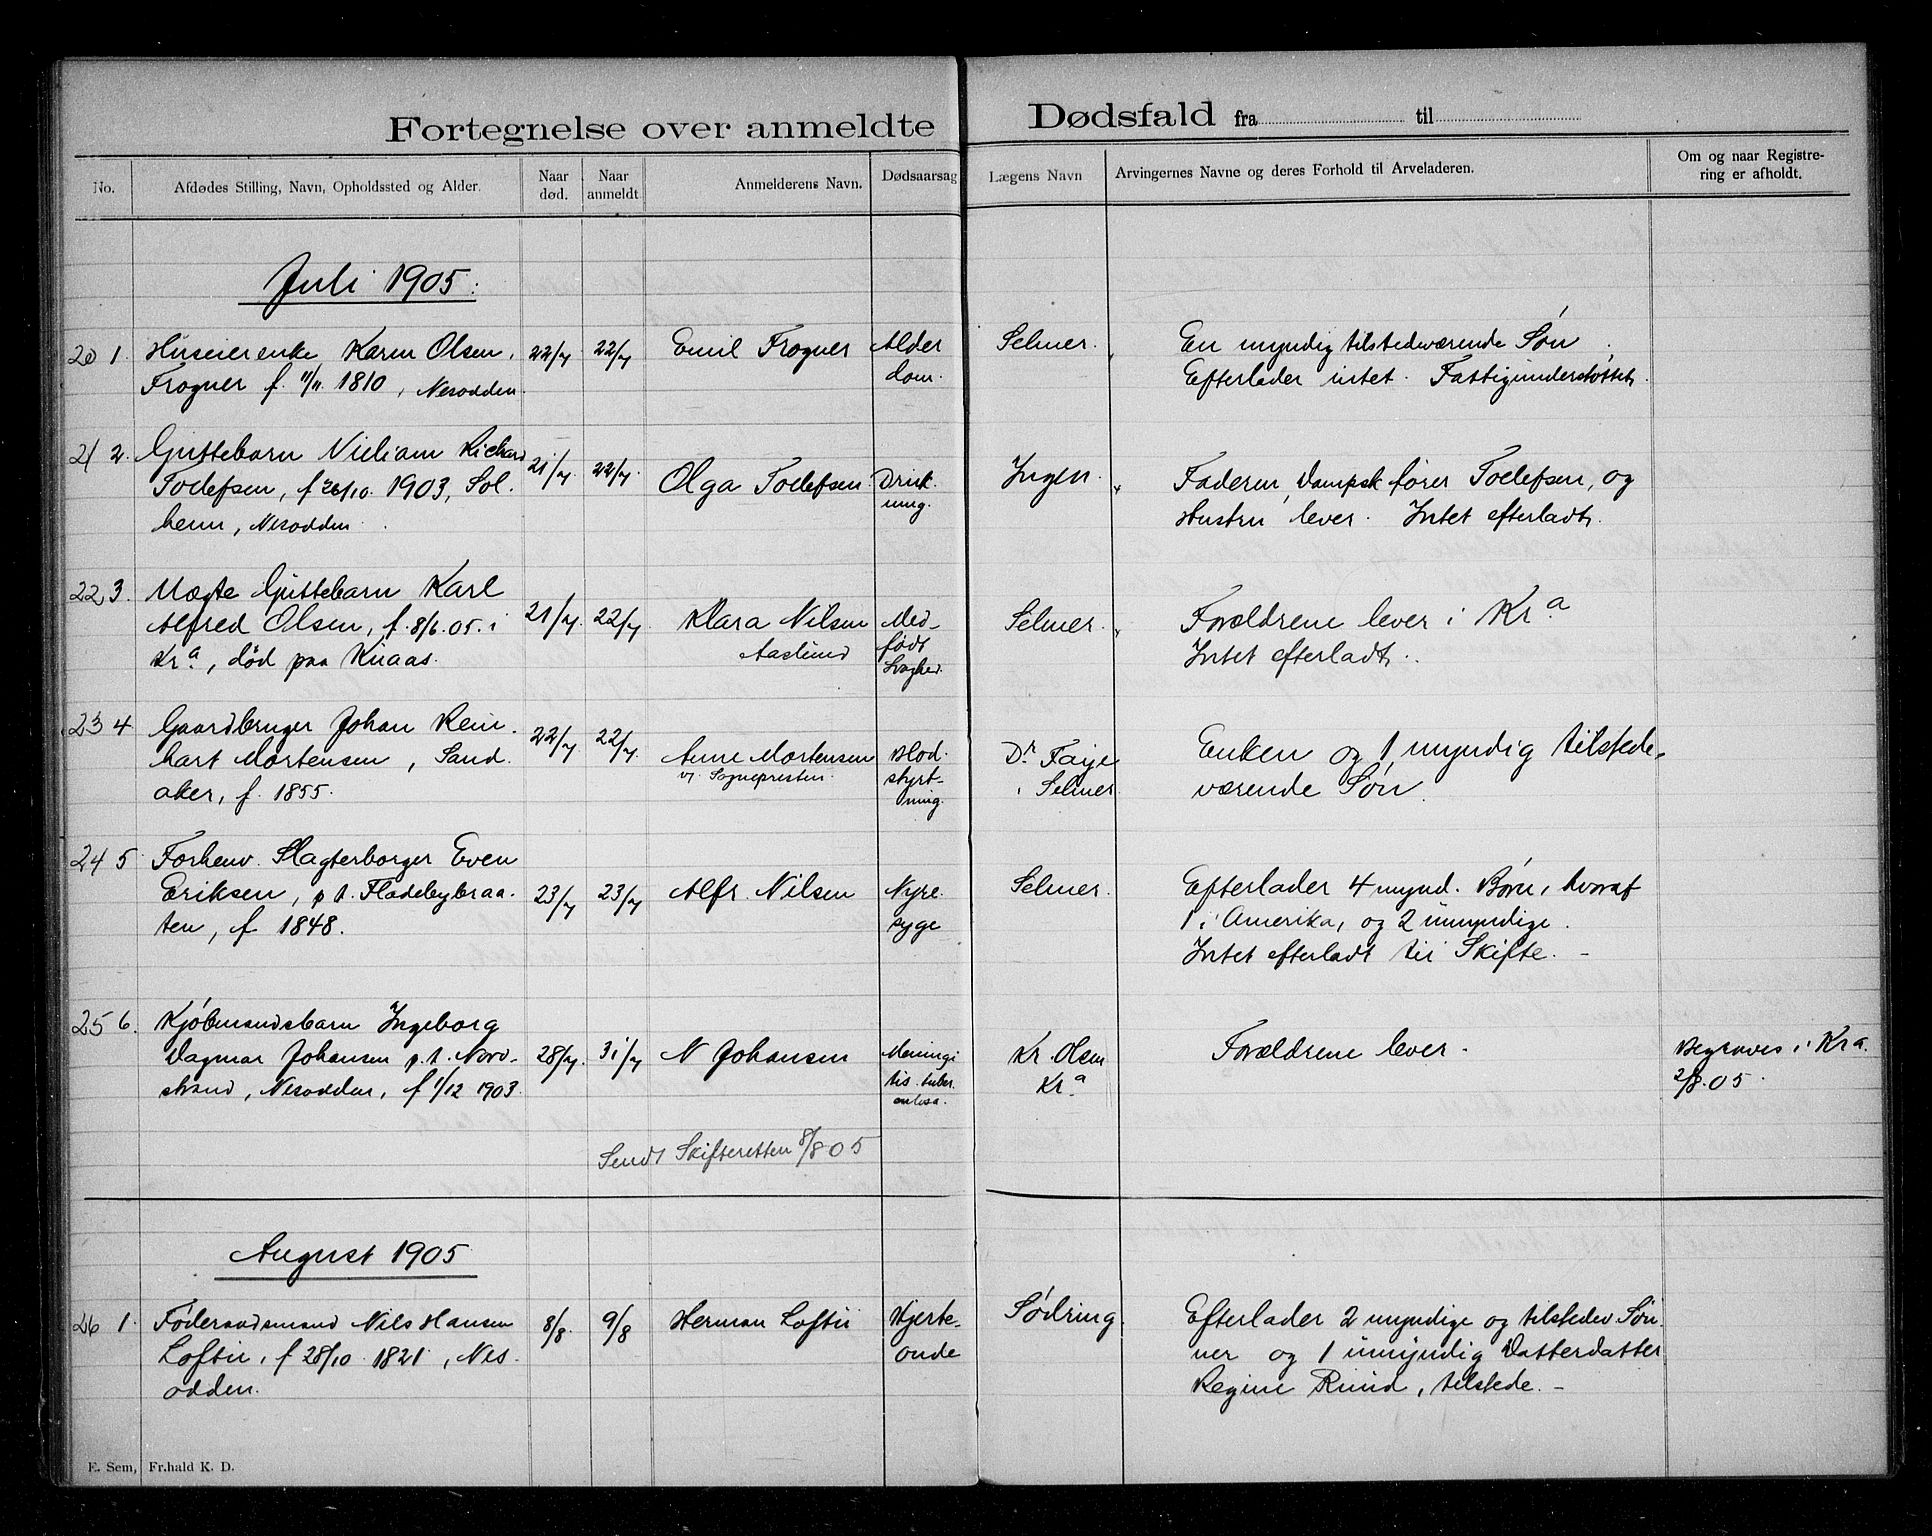 Fortegnelse over anmeldte Dødsfald fra til
No.
Afdødes Stilling, Navn, Opholdssted og Alder.
Naar død.
Naar anmeldt
Anmelderens Navn.
Dødsaarsag
Lægens Navn
Arvingernes Navne og deres Forhold til Arveladeren.
Om og naar Registre-
ring er afholdt.
Juli 1905.
20 1. Huseierenke Karen Olsen, 22/7 22/7 Emil Frogner Alder Selmer. En myndig tilstedeværende Søn.
Frogner f. 11/11 1810, Nesodden. dom. Efterlader intet. Fattigunderstøttet.
21 2. Guttebarn Viliam Richard 21/7. 22/7 Olga Tollefsen Drukning. Ingen. Faderen, Dampsk.fører Tollefsen, og
Tollefsen, f 26/10. 1903, Sol-
heim, Nesodden. Hustru lever. Intet efterladt.
22 3. Uægte Guttebarn Karl 21/7. 22/7 Klara Nilsen Med- Selmer. Forældrene lever i Kra
Alfred Olsen, f. 8/6. 05. i Aaslund født
Kra, død paa Knaas. Svaghed. Intet efterladt.
23 4 Gaardbruger Johan Rein- 22/7 22/7. Anne Mortensen Blod- Dr. Faye Enken og 1 myndig tilstede-
hart Mortensen, Sand- v. Sognepresten. styrt- Selmer. værende Søn.
aker, f. 1855. ning.
24 5 Forhenv. Slagterborger Even
Eriksen, p.t. Fladebybraa- 23/7 23/7 Alfr. Nilsen Nyre- Selmer. Efterlader 4 mynd. Børn, hvoraf
ten, f 1848. syge 1 i Amerika, og 2 umyndige.
Intet efterladt til Skifte. -
25 6. Kjøbmandsbarn Ingeborg
Dagmar Johansen p.t. Nord- 28/7. 31/7 N Johansen Meningi- Kr. Olsen Forældrene lever. Begraves i Kra.
strand, Nesodden, f 1/12 1903. tis tuber- Kra 2/8. 05.
culosa.
Sendt Skifteretten 8/8 05
August 1905
26 1. Føderaadsmand Nils Hansen 8/8. 9/8 Herman Loftu Hjerte- Sødring. Efterlader 2 myndige og tilstedev. Søn-
Loftu, f 28/10 1821, Nes- onde ner og 1 umyndig Datterdatter
odden. Regine Rud, tilstede. -
E. Sem, Fr.hald K. D.